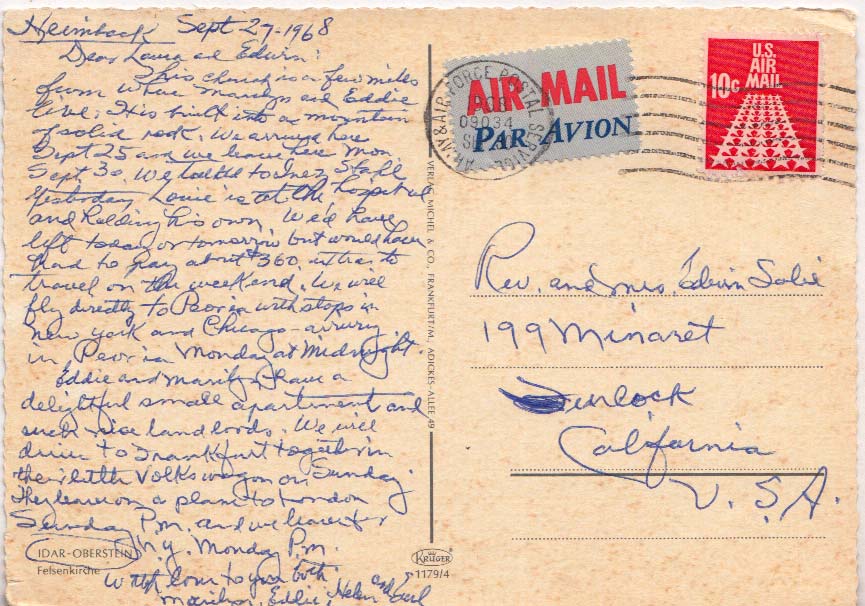 Heimbach Sept 27-1968
Dear Laura and Edwin:
This church is a few miles
from where Marilyn and Eddie
live. It is built into a mountain
of solid rock. We arrived here
Sept 25 and we leave here Mon
Sept 30. We talked to Inez Stahl
yesterday Louie is at the hospital
and holding his own. We'd have
left today or tomorrow but would have
had to pay about $360. extra to
travel on the weekend. We will
fly directly to Peoria with stops in
new york and Chicago - arriving
in Peoria Monday at Midnight.
Eddie and Marilyn have a
delightful small apartment and
such nice land lords. We will
drive to Frankfurt together in
their little Volkswagon on Sunday.
They leave on a plane to London
Sunday P.m. and we leave for
N.y. Monday P.m.
With love to you both
Marilyn, Eddie, Helen and Earl
IDAR-OBERSTEIN
Felsenkirche
VERLAG MICHEL & CO., FRANKFURT/M., ADICKES-ALLEE 49
KRÜGER
1179/4
AIR MAIL
PAR AVION
ARMY & AIR FORCE POSTAL SERVICE
09034
U.S.
AIR
MAIL
10c
Rev. and Mrs. Edwin Solie
199 Minaret
Turlock
California
U.S.A.